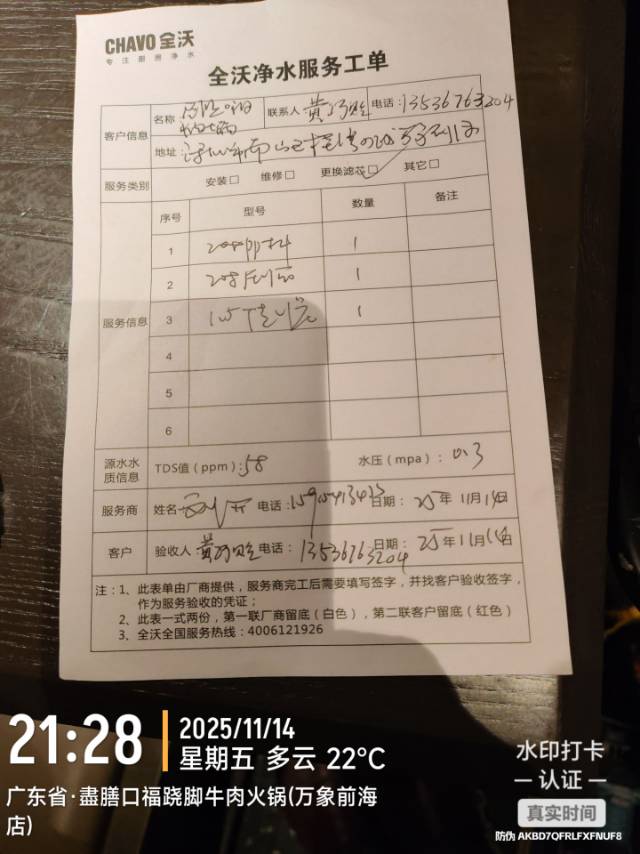 CHAVO 全沃
专注厨房净水
全沃净水服务工单
客户信息
名称：
联系人 黄
电话：13536763204
地址：
服务类别
安装□ 维修□ 更换滤芯☑ 其它□
服务信息
序号 型号 数量 备注
1 1
2 1
3 1
4
5
6
源水水质信息
TDS值（ppm）：58 水压（mpa）：0.3
服务商 姓名 电话： 日期：25年11月14日
客户 验收人 黄 电话：13536763204 日期：25年11月14日
注：1、此表单由厂商提供，服务商完工后需要填写签字，并找客户验收签字，
作为服务验收的凭证；
2、此表一式两份，第一联厂商留底（白色），第二联客户留底（红色）
3、全沃全国服务热线：4006121926
21:28
2025/11/14
星期五 多云 22°C
广东省·盡膳口福跷脚牛肉火锅(万象前海
店)
水印打卡
认证
真实时间
防伪 AKBD7QFRLFXFNUF8